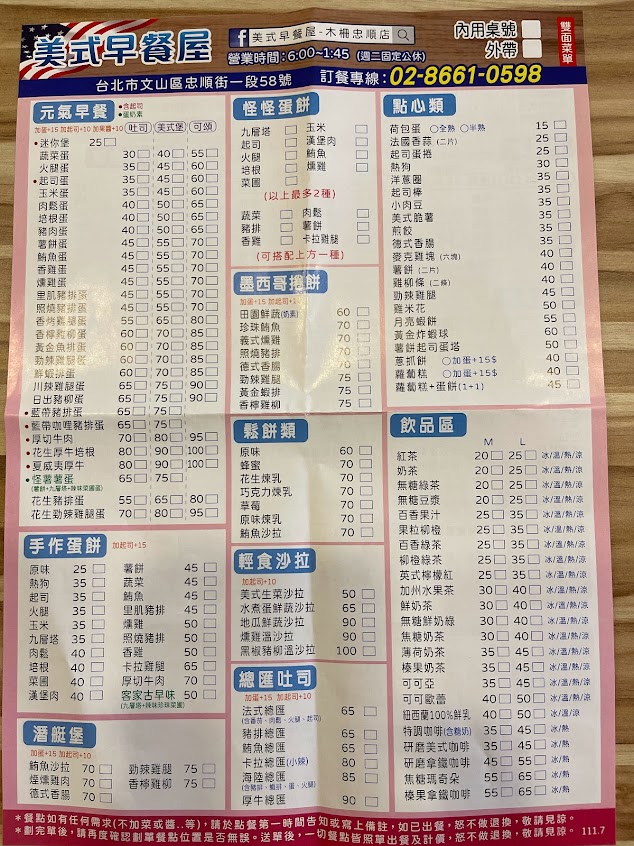 美式早餐屋
f 美式早餐屋-木柵忠順店
營業時間:6:00~1:45 (週二固定公休)
內用桌號
外帶
雙面菜單
台北市文山區忠順街一段58號 訂餐專線:02-8661-0598
元氣早餐 •含起司 •蛋奶素
加蛋+15 加起司+10 加果醬+10 吐司 美式堡 可頌
•迷你堡 25
蔬菜蛋 30 40 55
火腿蛋 35 45 60
•起司蛋 35 45 60
玉米蛋 35 45 60
肉鬆蛋 40 50 65
培根蛋 40 50 65
豬排蛋 40 50 65
薯餅蛋 45 55 70
鮪魚蛋 45 55 70
香雞蛋 45 55 70
燻雞蛋 45 55 70
里肌豬排蛋 45 55 70
照燒豬排蛋 45 55 70
香烤雞腿蛋 55 65 80
香檸雞柳蛋 60 70 85
黃金魚排蛋 60 70 85
勁辣雞腿蛋 60 70 85
鮮蝦排蛋 60 70 85
川辣雞腿蛋 65 75 90
日出豬柳蛋 65 75 90
•藍帶豬排蛋 65 75
•藍帶咖哩豬排蛋 65 75
•厚切牛肉 70 80 95
•花生厚牛培根 80 90 100
•夏威夷厚牛 80 90 100
•怪薯薯蛋 65 75
(薯餅+九層塔+辣味菜圃蛋)
花生豬排蛋 55 65 80
花生勁辣雞腿蛋 70 80 95
手作蛋餅 加起司+15
原味 25 薯餅 45
熱狗 35 蔬菜 45
起司 35 鮪魚 45
火腿 35 里肌豬排 45
玉米 35 燻雞 50
九層塔 35 照燒豬排 50
肉鬆 40 香雞 50
培根 40 卡拉雞腿 65
菜圃 40 厚切牛肉 70
漢堡肉 40 客家古早味 50
(九層塔+辣味珍珠菜圃)
潛艇堡
加蛋+15 加起司+10
鮪魚沙拉 70 勁辣雞腿 75
煙燻雞肉 70 香檸雞柳 75
德式香腸 70
怪怪蛋餅
九層塔 玉米
起司 漢堡肉
火腿 鮪魚
培根 燻雞
菜圃
(以上最多2種)
蔬菜 肉鬆
豬排 薯餅
香雞 卡拉雞腿
(可搭配上方一種)
墨西哥捲餅
加蛋+15 加起司+10
田園鮮蔬(奶素) 60
珍珠鮪魚 70
義式燻雞 70
照燒豬排 70
德式香腸 70
勁辣雞腿 75
黃金蝦排 75
香檸雞柳 75
鬆餅類
原味 60
蜂蜜 70
花生煉乳 70
巧克力煉乳 70
草莓 70
原味煉乳 70
鮪魚沙拉 70
輕食沙拉
加起司+10
美式生菜沙拉 50
水煮蛋鮮蔬沙拉 65
地瓜鮮蔬沙拉 90
燻雞溫沙拉 90
黑椒豬柳溫沙拉 100
總匯吐司
加蛋+15 加起司+10
法式總匯 65
(含番茄、肉鬆、火腿、起司)
豬排總匯 65
鮪魚總匯 65
卡拉總匯(小辣) 80
海陸總匯 85
(含豬排、蝦排、蛋、火腿)
厚牛總匯 90
點心類
荷包蛋 ○全熟 ○半熟 15
法國香蒜(二片) 25
起司蛋捲 25
熱狗 30
洋蔥圈 35
起司棒 35
小肉豆 35
美式脆薯 35
煎餃 35
德式香腸 35
麥克雞塊(六塊) 40
薯餅(二片) 40
雞柳條(二條) 40
勁辣雞腿 45
雞米花 50
月亮蝦餅 55
黃金炸蝦球 60
薯餅起司蛋塔 50
蔥抓餅 ○加蛋+15$ 40
蘿蔔糕 ○加蛋+15$ 40
蘿蔔糕+蛋餅(1+1) 45
飲品區
M L
紅茶 20 25 冰/溫/熱/涼
奶茶 20 25 冰/溫/熱/涼
無糖綠茶 20 25 冰/溫/熱/涼
無糖豆漿 20 25 冰/溫/熱/涼
百香果汁 25 35 冰/溫/熱/涼
果粒柳橙 25 35 冰/溫/熱/涼
百香綠茶 25 35 冰/溫/熱/涼
柳橙綠茶 25 35 冰/溫/熱/涼
英式檸檬紅 25 35 冰/溫/熱/涼
加州水果茶 30 40 冰/溫/熱/涼
鮮奶茶 30 40 冰/溫/熱/涼
無糖鮮奶綠 30 40 冰/溫/熱/涼
焦糖奶茶 30 40 冰/溫/熱/涼
薄荷奶茶 35 45 冰/溫/熱/涼
榛果奶茶 35 45 冰/溫/熱/涼
可可亞 35 45 冰/溫/熱/涼
可可歐蕾 40 50 冰/溫/熱/涼
紐西蘭100%鮮乳 40 50 冰/溫/涼
特調咖啡(含糖奶) 35 45 冰/熱
研磨美式咖啡 35 45 冰/熱
研磨拿鐵咖啡 45 55 冰/熱
焦糖瑪奇朵 55 65 冰/熱
榛果拿鐵咖啡 55 65 冰/熱
*餐點如有任何需求(不加菜或醬..等),請於點餐第一時間告知或寫上備註,如已出餐,恕不做退換,敬請見諒。
*劃完單後,請再度確認劃單餐點位置是否無誤。送單後,一切餐點皆照單出餐及計價,恕不做退換,敬請見諒。 111.7